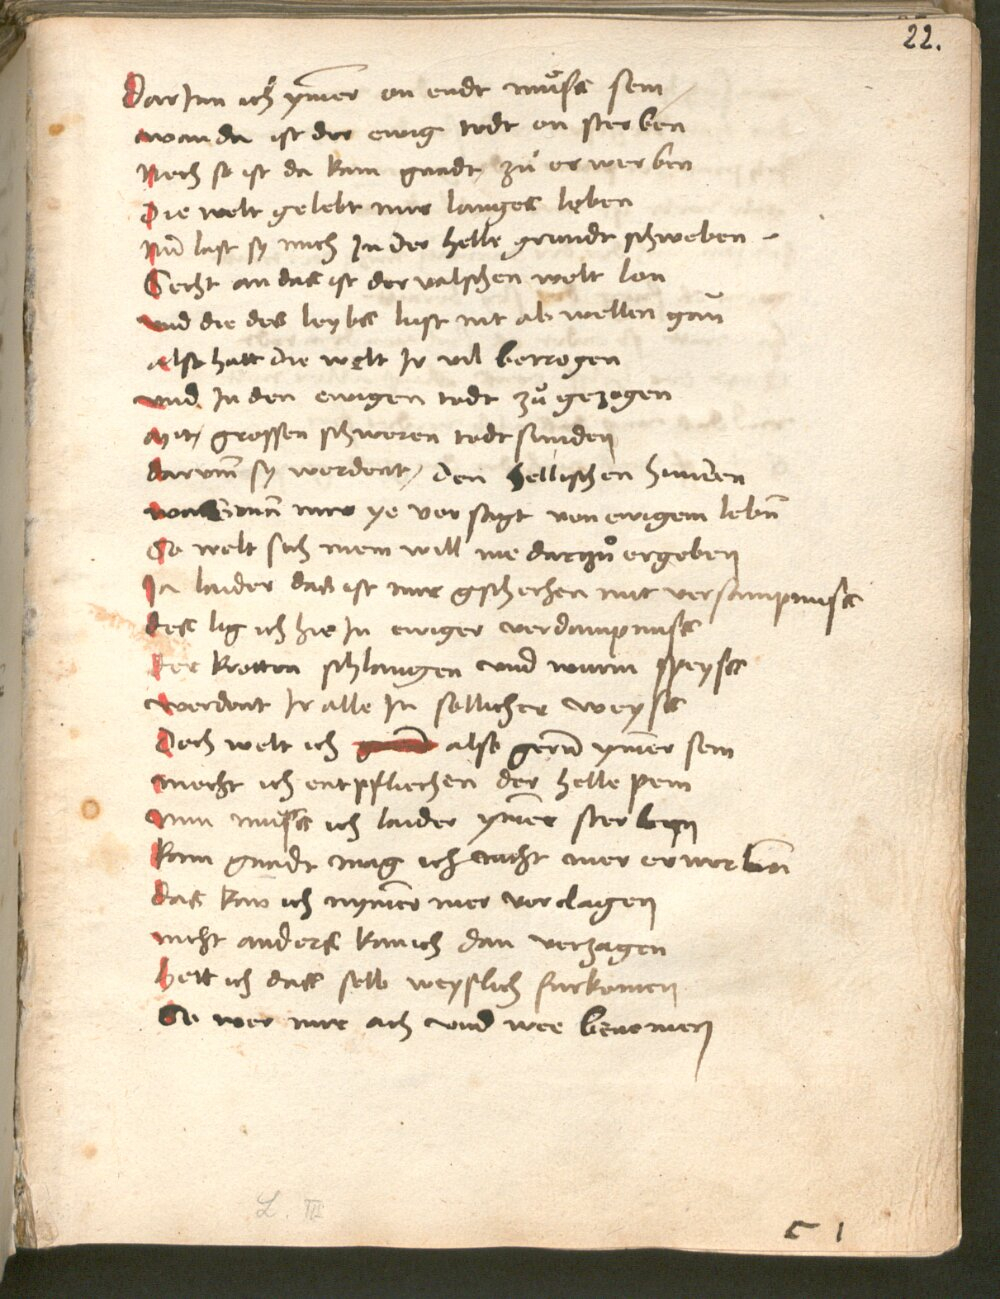 22.
Dar Jnn ich ym̄er on endt muͦss sein
wan da ist der ewig todt on sterben
Noch so ist da kain gnadt zuͦ erwerben
Die welt gelebt mir langes leben
Nū last sy mich In der helle grundt schweben
Secht an das ist der valschen welt lon
vnd die des leybs lust nit ab wellen gan̄
also hatt die welt Ir vil betrogen
vnd In den ewigen todt zuͦ gezogen
Mit grossen schweren todt sunden
darum̄ sy werdent den hellischen hunden
was man̄ mir ye vor sagt von ewigem lebn̄
So welt sich mein will nie darzuͦ ergeben
Ja laider das ist mir gschechen mit versampnuss
des lig ich hie In ewiger verdampnuss
Der krotten schlangen vnd wurm speyss
werdent Ir alle In sollicher weyss
Doch welt ich also gern̄ ym̄er sein
mecht ich entpfliechen der helle pein
Nun muͦss ich laider ym̄er sterben
kain gnadt mag ich nicht mer erwerbn̄
das kan̄ ich nym̄er mer verclagen
nicht anders kan ich dan verzagen
Hett ich dass selb weyslich furkomen
So wer mir ach vnd wee benomen
L. III
c 1